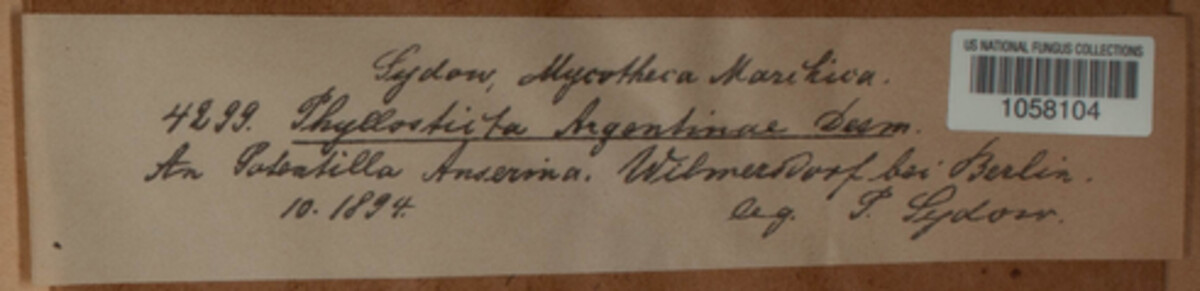 Sydow, Mycotheca Marchica.
4299. Phyllosticta Argentinae Desm.
An Potentilla Anserina. Wilmersdorf bei Berlin.
10. 1894.
leg. P. Sydow.
US NATIONAL FUNGUS COLLECTIONS
1058104